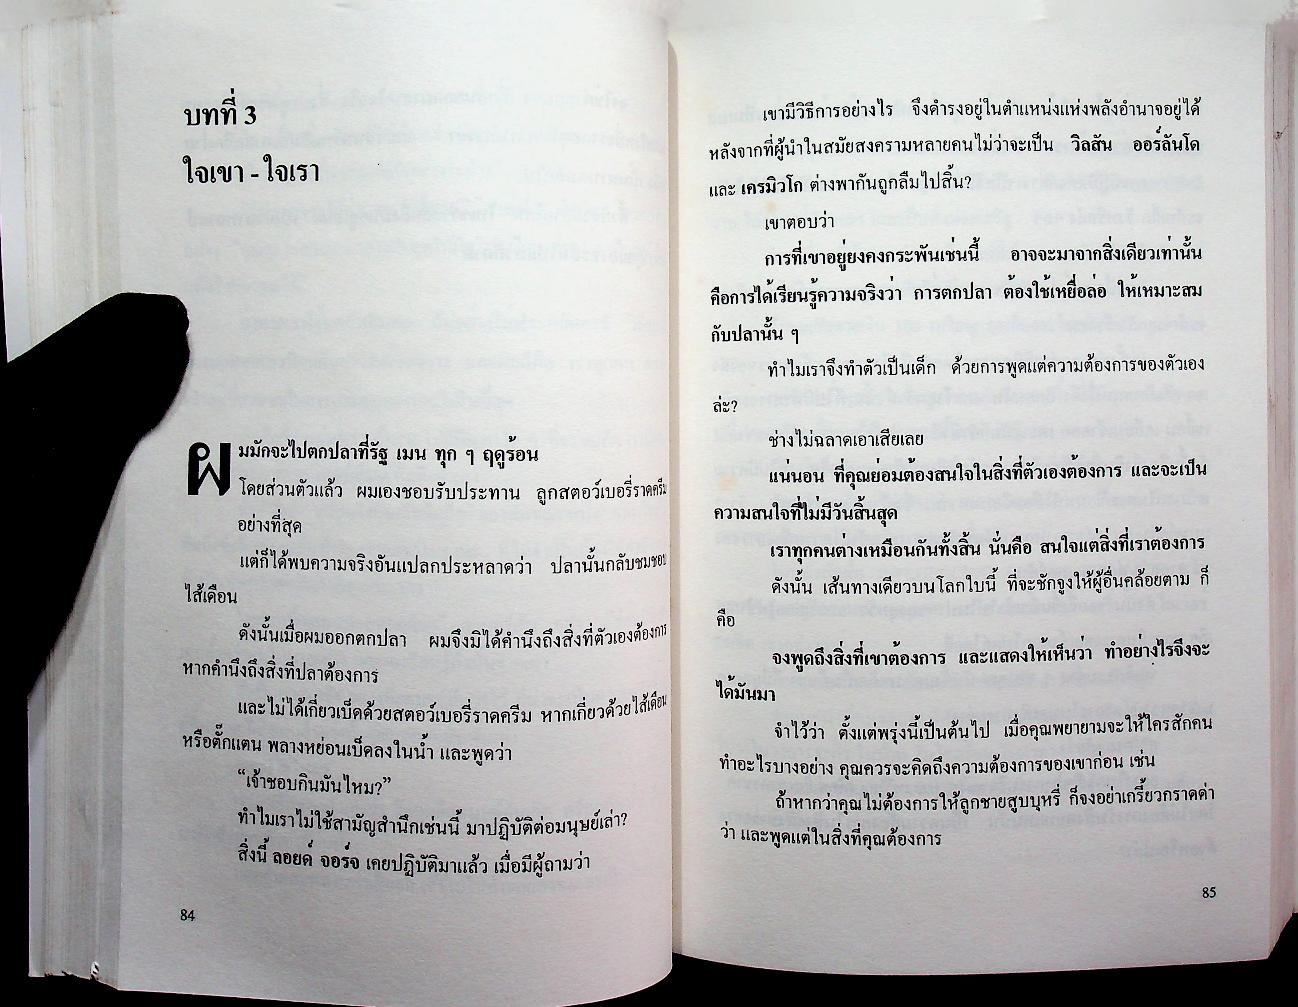 บทที่ 3
ใจเขา - ใจเรา
ผมมักจะไปตกปลาที่รัฐ เมน ทุก ๆ ฤดูร้อน
โดยส่วนตัวแล้ว ผมเองชอบรับประทาน ลูกสตอว์เบอรี่ราดครีม
อย่างที่สุด
แต่ก็ได้พบความจริงอันแปลกประหลาดว่า ปลานั้นกลับชมชอบ
ไส้เดือน
ดังนั้นเมื่อผมออกตกปลา ผมจึงมิได้คำนึงถึงสิ่งที่ตัวเองต้องการ
หากคำนึงถึงสิ่งที่ปลาต้องการ
และไม่ได้เกี่ยวเบ็ดด้วยสตอว์เบอรี่ราดครีม หากเกี่ยวด้วยไส้เดือน
หรือตั๊กแตน พลางหย่อนเบ็ดลงในน้ำ และพูดว่า
“เจ้าชอบกินมันไหม?”
ทำไมเราไม่ใช้สามัญสำนึกเช่นนี้ มาปฏิบัติต่อมนุษย์เล่า?
สิ่งนี้ ลอยด์ จอร์จ เคยปฏิบัติมาแล้ว เมื่อมีผู้ถามว่า
84
เขามีวิธีการอย่างไร จึงดำรงอยู่ในตำแหน่งแห่งพลังอำนาจอยู่ได้
หลังจากที่ผู้นำในสมัยสงครามหลายคนไม่ว่าจะเป็น วิลสัน ออร์ลันโด
และ เครมิวโก ต่างพากันถูกลืมไปสิ้น?
เขาตอบว่า
การที่เขาอยู่ยงคงกระพันเช่นนี้ อาจจะมาจากสิ่งเดียวเท่านั้น
คือการได้เรียนรู้ความจริงว่า การตกปลา ต้องใช้เหยื่อล่อ ให้เหมาะสม
กับปลานั้น ๆ
ทำไมเราจึงทำตัวเป็นเด็ก ด้วยการพูดแต่ความต้องการของตัวเอง
ล่ะ?
ช่างไม่ฉลาดเอาเสียเลย
แน่นอน ที่คุณย่อมต้องสนใจในสิ่งที่ตัวเองต้องการ และจะเป็น
ความสนใจที่ไม่มีวันสิ้นสุด
เราทุกคนต่างเหมือนกันทั้งสิ้น นั่นคือ สนใจแต่สิ่งที่เราต้องการ
ดังนั้น เส้นทางเดียวบนโลกใบนี้ ที่จะชักจูงให้ผู้อื่นคล้อยตาม ก็
คือ
จงพูดถึงสิ่งที่เขาต้องการ และแสดงให้เห็นว่า ทำอย่างไรจึงจะ
ได้มันมา
จำไว้ว่า ตั้งแต่พรุ่งนี้เป็นต้นไป เมื่อคุณพยายามจะให้ใครสักคน
ทำอะไรบางอย่าง คุณควรจะคิดถึงความต้องการของเขาก่อน เช่น
ถ้าหากว่าคุณไม่ต้องการให้ลูกชายสูบบุหรี่ ก็จงอย่าเกรี้ยวกราดด่า
ว่า และพูดแต่ในสิ่งที่คุณต้องการ
85